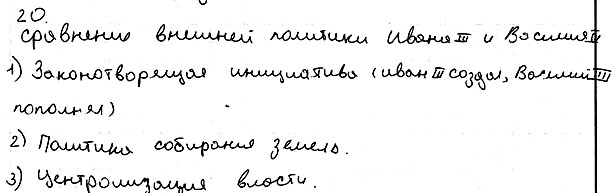 20.
сравнение внешней политики Ивана III и Василия III
1) Законотворящая инициатива (иван III создал, Василий III
пополнял)
2) Политика собирания земель.
3) Централизация власти.